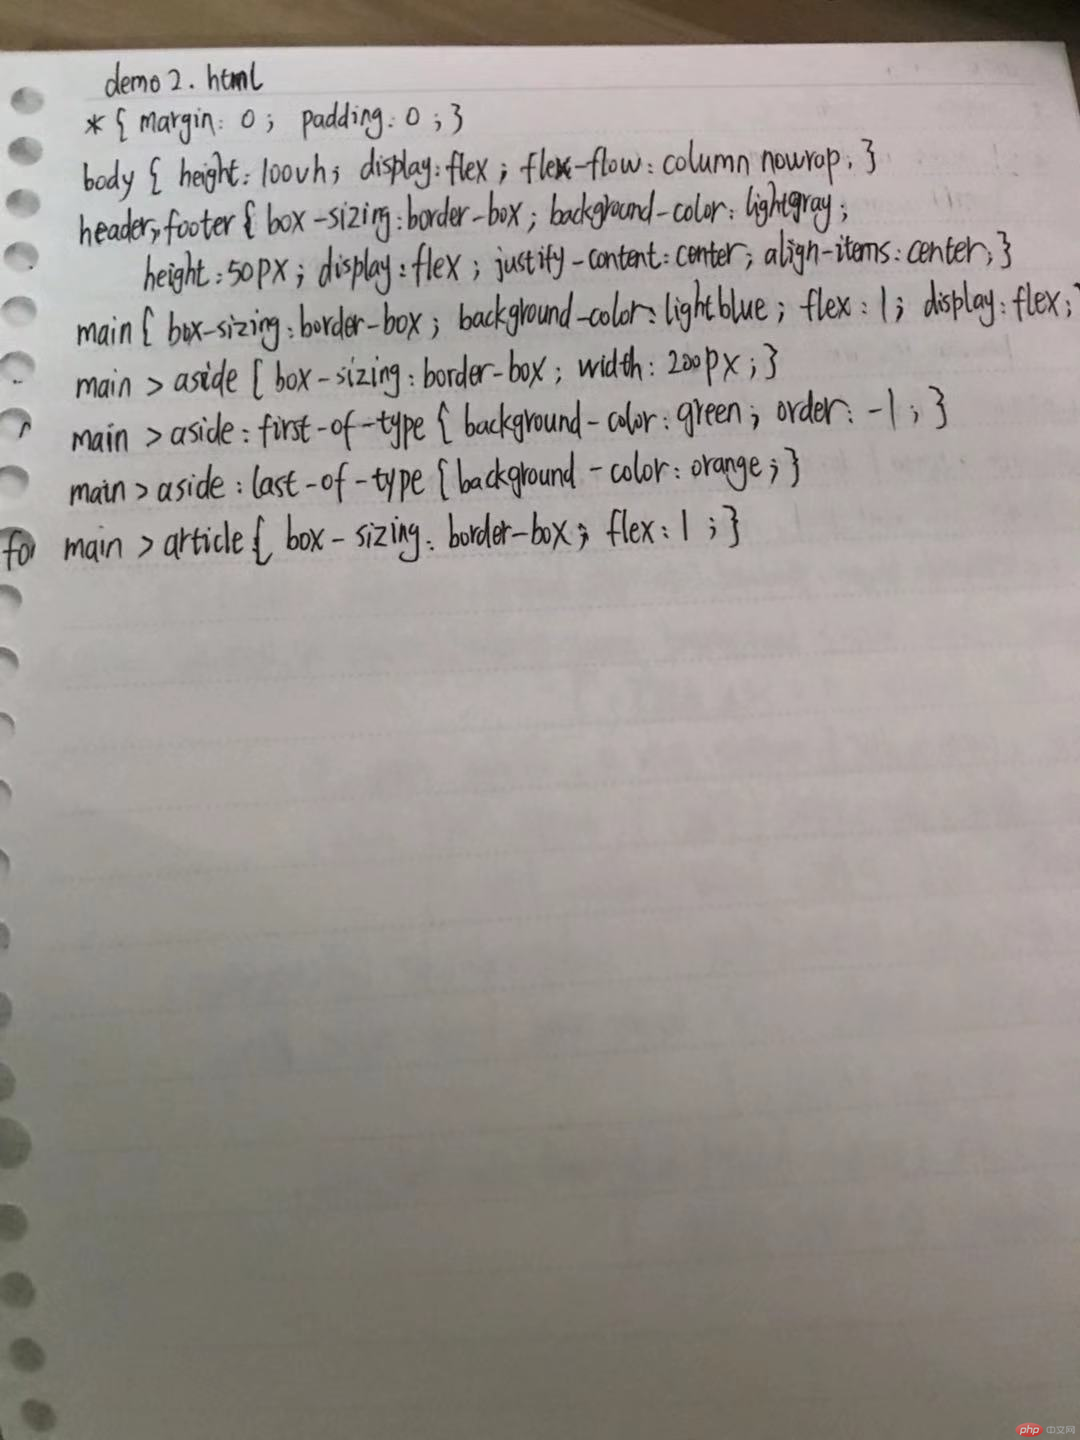 demo2.html
*{ margin: 0; padding: 0;}
body { height: 100vh; display: flex; flex-flow: column nowrap; }
header, footer { box-sizing: border-box; background-color: lightgray;
height: 50px; display: flex; justify-content: center; align-items: center; }
main { box-sizing: border-box; background-color: lightblue; flex: 1; display: flex; }
main > aside { box-sizing: border-box; width: 200px; }
main > aside : first-of-type { background-color: green; order: -1; }
main > aside : last-of-type { background-color: orange; }
main > article { box-sizing: border-box; flex: 1; }
php 中文网